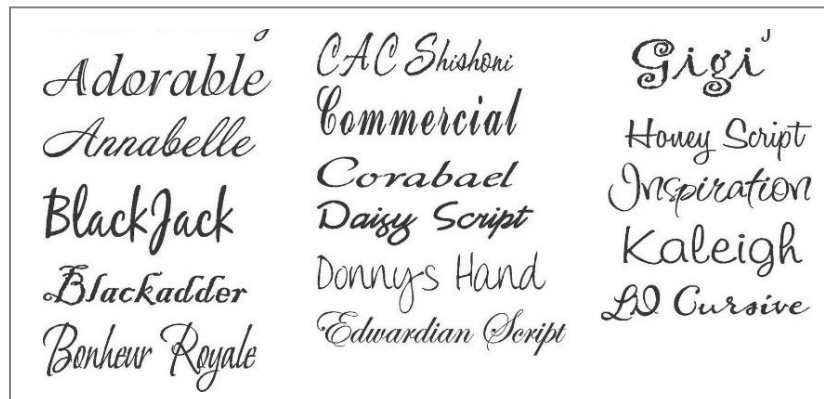 Adorable
Annabelle
BlackJack
Blackadder
Bonheur Royale
CAC Shishoni
Commercial
Corabael
Daisy Script
Donnys Hand
Edwardian Script
Gigi
Honey Script
Inspiration
Kaleigh
LD Cursive